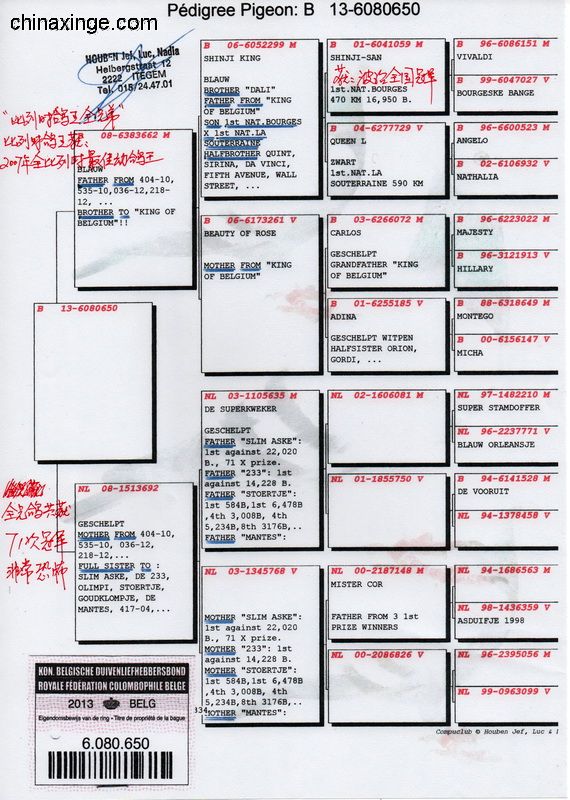 chinaxinge.com
Pédigree Pigeon: B 13-6080650
HOUBEN Jef, Luc, Nadia
Heibergstraat 12
2222 ITEGEM
Tel. 015/24.47.01
比利时鸽王
2007年全比利时最佳幼鸽王
B 08-6383662 M
BLAUW
FATHER FROM 404-10,
535-10,036-12,218-
12, ...
BROTHER TO "KING OF
BELGIUM"!!
B 13-6080650
NL 08-1513692
GESCHELPT
MOTHER FROM 404-10,
535-10, 036-12,
218-12,...
FULL SISTER TO :
SLIM ASKE, DE 233,
OLIMPI, STOERTJE,
GOUDKLOMPJE, DE
MANTES, 417-04,...
全兄鸽共获
71次冠军
非常恐怖
B 06-6052299 M
SHINJI KING
BLAUW
BROTHER "DALI"
FATHER FROM "KING
OF BELGIUM"
SON 1st NAT.BOURGES
X 1st NAT.LA
SOUTERRAINE
HALFBROTHER QUINT,
SIRINA, DA VINCI,
FIFTH AVENUE, WALL
STREET, ...
B 06-6173261 V
BEAUTY OF ROSE
MOTHER FROM "KING
OF BELGIUM"
NL 03-1105635 M
DE SUPERKWEKER
GESCHELPT
FATHER "SLIM ASKE":
1st against 22,020
B., 71 X prize.
FATHER "233": 1st
against 14,228 B.
FATHER "STOERTJE":
1st 584B,1st 6,478B
,4th 3,008B, 4th
5,234B,8th 3176B,..
FATHER "MANTES":
NL 03-1345768 V
MOTHER "SLIM ASKE":
1st against 22,020
B., 71 X prize.
MOTHER "233": 1st
against 14,228 B.
MOTHER "STOERTJE":
1st 584B,1st 6,478B
,4th 3,008B, 4th
5,234B,8th 3176B,..
MOTHER "MANTES":
B 01-6041059 M
SHINJI-SAN
获:波治全国冠军
1st.NAT.BOURGES
470 KM 16,950 B.
B 04-6277729 V
QUEEN L
ZWART
1st.NAT.LA
SOUTERRAINE 590 KM
B 03-6266072 M
CARLOS
GESCHELPT
GRANDFATHER "KING
OF BELGIUM"
B 01-6255185 V
ADINA
GESCHELPT WITPEN
HALFSISTER ORION,
GORDI, ...
NL 02-1606081 M
NL 01-1855750 V
NL 00-2187148 M
MISTER COR
FATHER FROM 3 1st
PRIZE WINNERS
NL 00-2086826 V
B 96-6086151 M
VIVALDI
B 99-6047027 V
BOURGESKE BANGE
B 96-6600523 M
ANGELO
B 02-6106932 V
NATHALIA
B 96-6223022 M
MAJESTY
B 96-3121913 V
HILLARY
B 88-6318649 M
MONTEGO
B 00-6156147 V
MICHA
NL 97-1482210 M
SUPER STAMDOFFER
NL 96-2237771 V
BLAUW ORLEANSJE
B 94-6141528 M
DE VOORUIT
NL 94-1378458 V
NL 94-1686563 M
NL 98-1436359 V
ASDUIFJE 1998
NL 96-2395056 M
NL 99-0963099 V
Compuclub © Houben Jef, Luc &
KON. BELGISCHE DUIVENLIEFHEBBERSBOND
ROYALE FÉDÉRATION COLOMBOPHILE BELGE
2013 BELG
Eigendomsbewijs van de ring - Titre de propriété de la bague
6.080.650
334